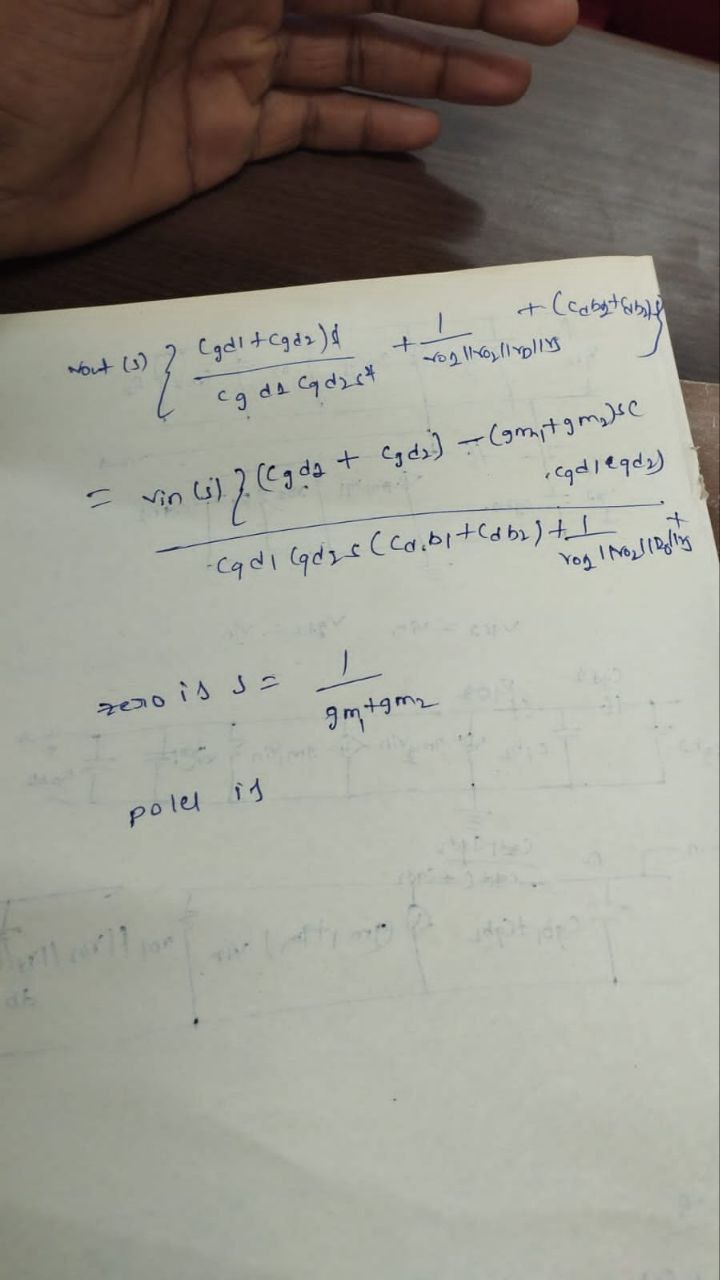 vout (s) { (Cgd1 + Cgd2)s / Cgd1 Cgd2 s + 1 / ro1||ro2||rD||rs + (Cdb1+Cdb2)s }
= vin (s) { (Cgd1 + Cgd2) - (gm1 + gm2)s(
. Cgd1 Cgd2)
Cgd1 Cgd2 s (Cdb1 + Cdb2) + 1 / ro1||ro2||rD||rs +
zero is s = 1 / gm1+gm2
poles is